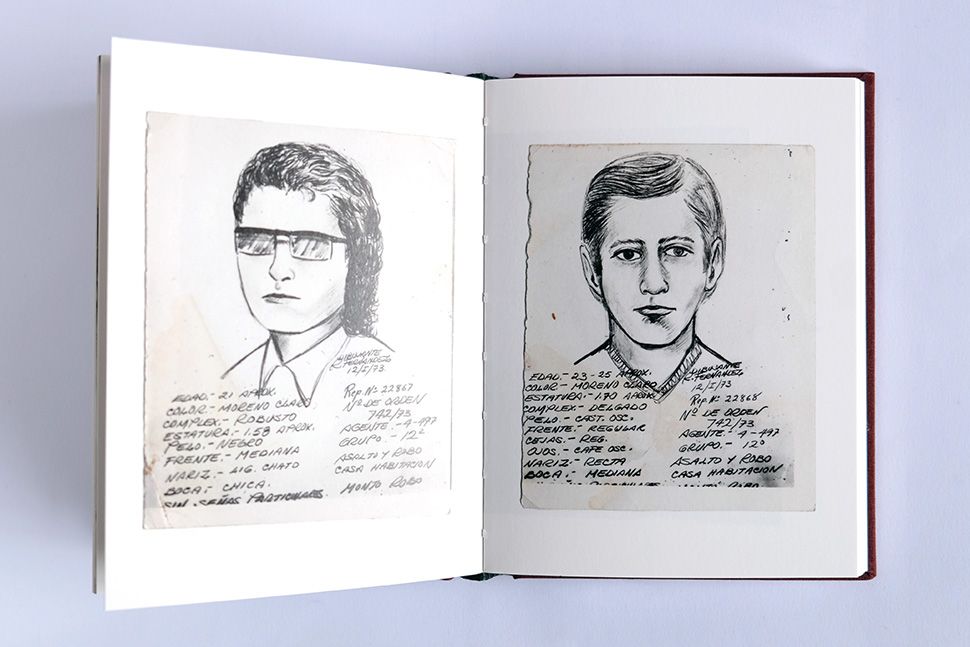 DIBUJANTE
R. FERNANDEZ
12/I/73
EDAD.- 21 APROX.
COLOR.- MORENO CLARO
COMPLEX.- ROBUSTO
ESTATURA.- 1.58 APROX.
PELO.- NEGRO
FRENTE.- MEDIANA
NARIZ.- LIG. CHATO
BOCA.- CHICA.
SIN SEÑAS PARTICULARES
Rep. Nº 22867
Nº DE ORDEN
742/73
AGENTE.- A-497
GRUPO.- 12º
ASALTO Y ROBO
CASA HABITACION
MONTO ROBO
DIBUJANTE
R. FERNANDEZ
12/I/73
EDAD.- 23-25 APROX.
COLOR.- MORENO CLARO
ESTATURA.- 1.70 APROX.
COMPLEX.- DELGADO
PELO.- CAST. OSC.
FRENTE.- REGULAR
CEJAS.- REG.
OJOS.- CAFE OSC.
NARIZ.- RECTA
BOCA.- MEDIANA
Rep. Nº 22868
Nº DE ORDEN
742/73
AGENTE.- A-497
GRUPO.- 12º
ASALTO Y ROBO
CASA HABITACION
MONTO ROBO